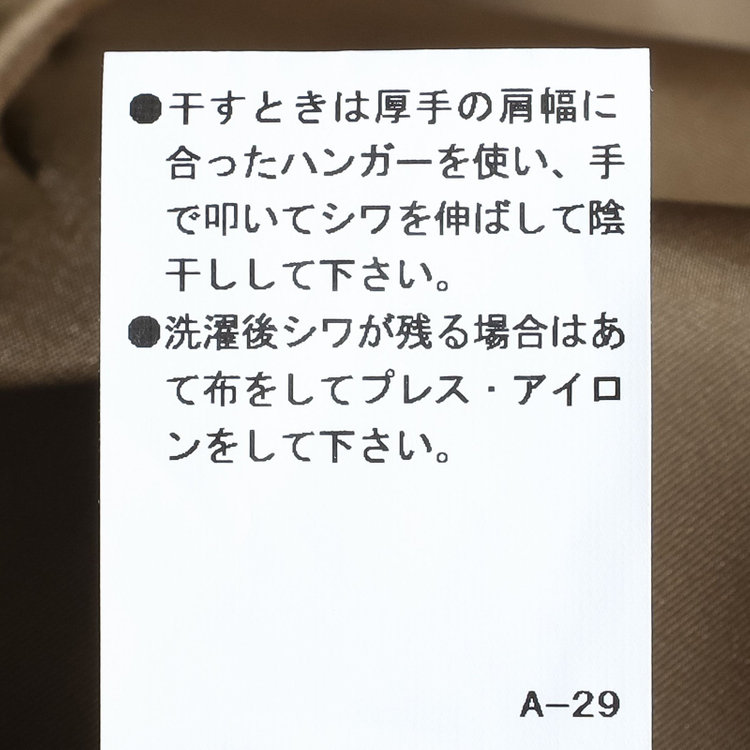 ●干すときは厚手の肩幅に
合ったハンガーを使い、手
で叩いてシワを伸ばして陰
干しして下さい。
●洗濯後シワが残る場合はあ
て布をしてプレス・アイロ
ンをして下さい。
A-29